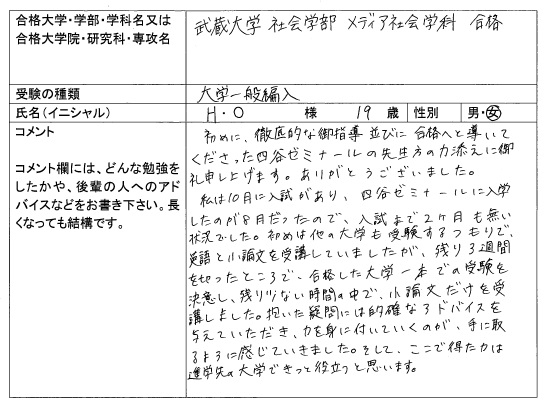 合格大学・学部・学科名又は
合格大学院・研究科・専攻名
武蔵大学 社会学部 メディア社会学科 合格
受験の種類
大学一般編入
氏名(イニシャル)
H・O 様 19 歳 性別 男・女
コメント
コメント欄には、どんな勉強を
したかや、後輩の人へのアド
バイスなどをお書き下さい。長
くなっても結構です。
初めに、徹底的な御指導並びに合格へと導いて
くださった四谷ゼミナールの先生方の力添えに御
礼申し上げます。ありがとうございました。
私は10月に入試があり、四谷ゼミナールに入学
したのが8月だったので、入試まで2ヶ月も無い
状況でした。初めは他の大学も受験するつもりで、
英語と小論文を受講していましたが、残り3週間
を切ったところで、合格した大学一本での受験を
決意し、残り少ない時間の中で、小論文だけを受
講しました。抱いた疑問には的確なアドバイスを
与えていただき、力を身に付いていくのが、手に取
るように感じていきました。そして、ここで得た力は
進学先の大学できっと役立つと思います。